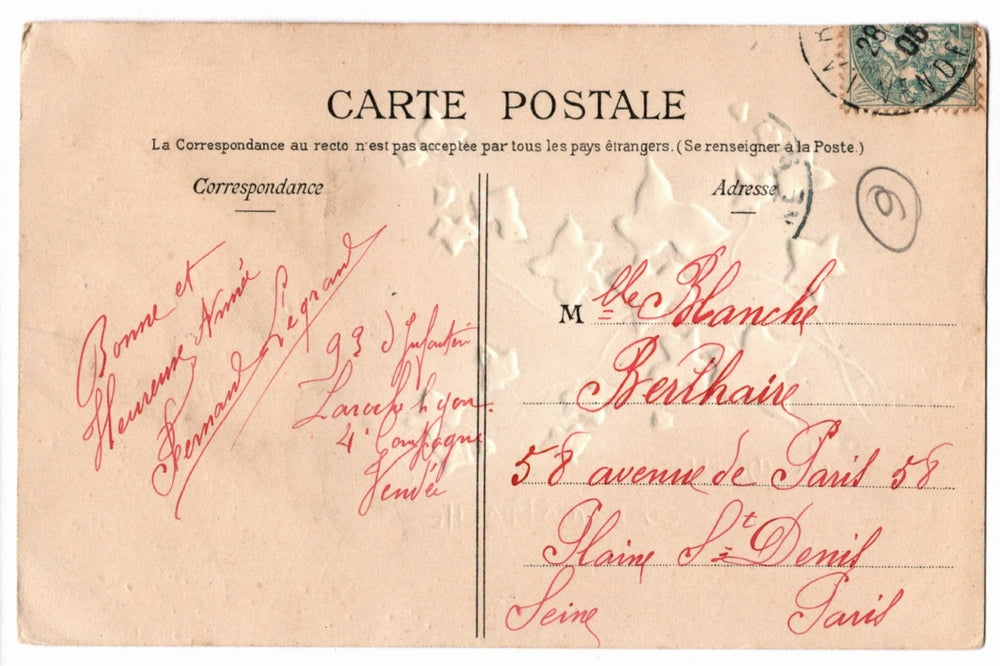 CARTE POSTALE
La Correspondance au recto n'est pas acceptée par tous les pays étrangers. (Se renseigner à la Poste.)
Correspondance
Bonne et
Heureuse Année
Fernand Légrand
93 d'Infanterie
Laroche s Yon
4e Compagnie
Vendée
Adresse
Mlle Blanche
Berthaire
58 avenue de Paris 58
Plaine St Denis
Seine Paris
28
06
VENDÉE
9